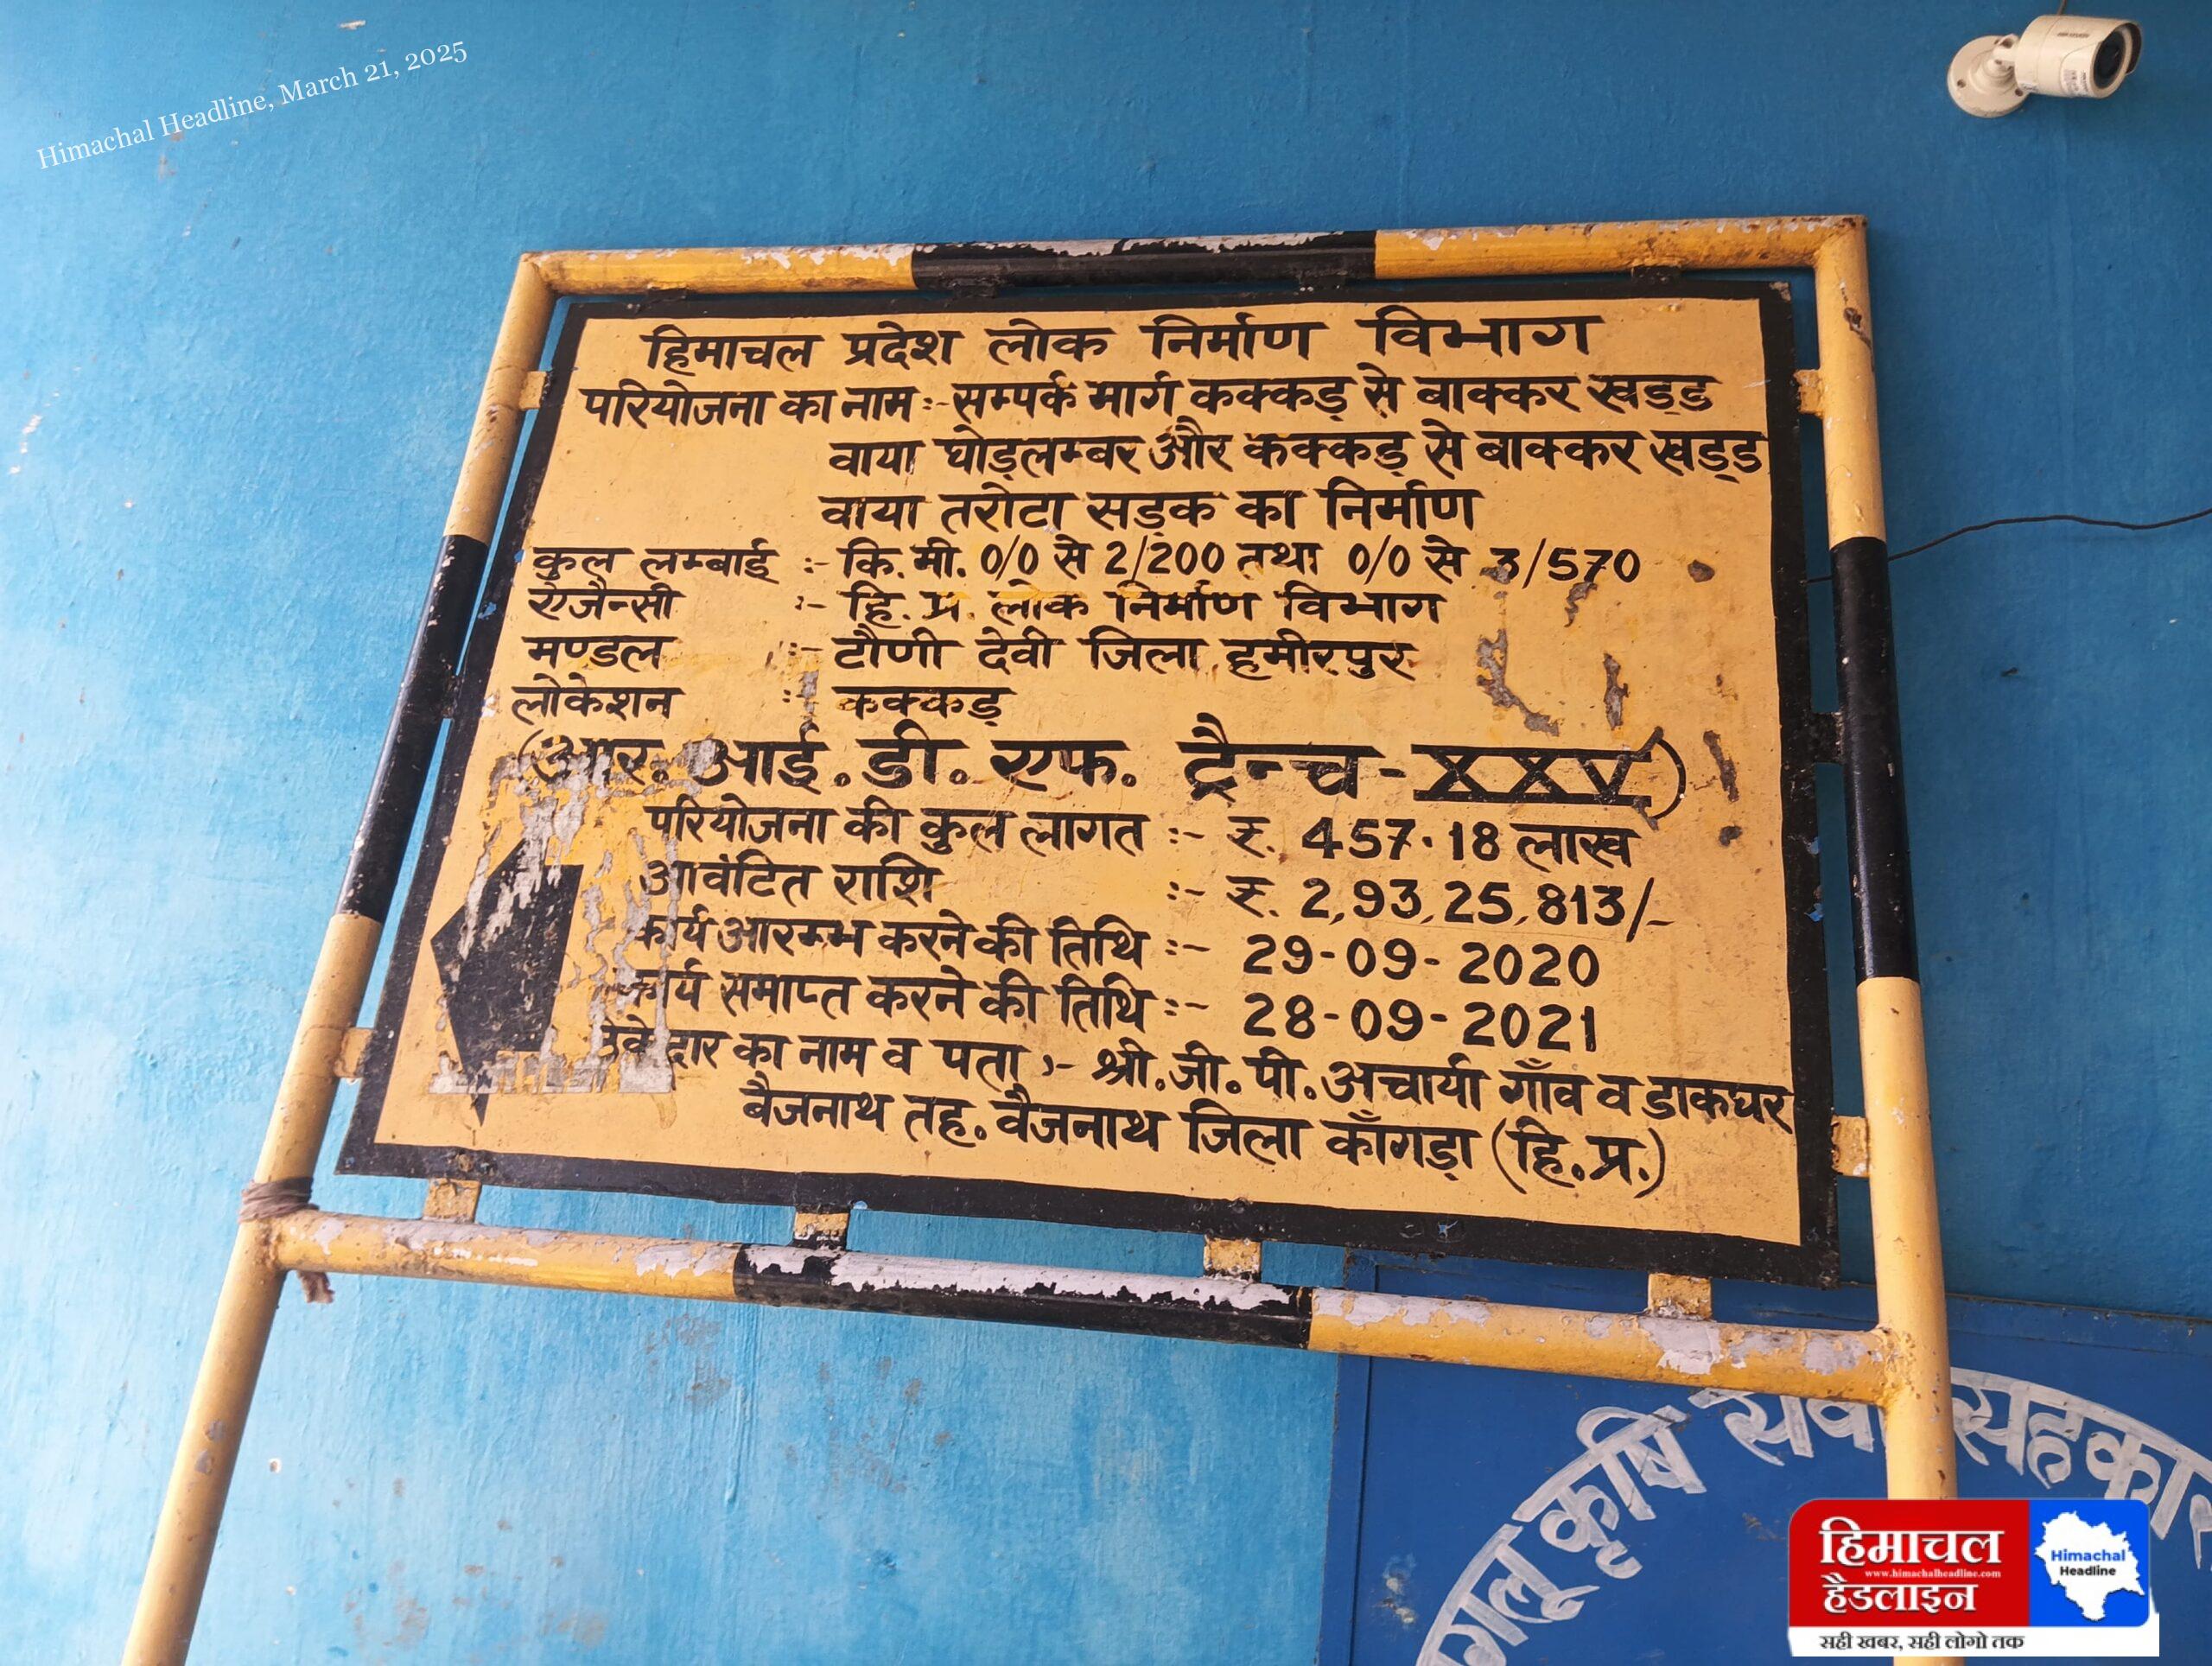 Himachal Headline, March 21, 2025
हिमाचल प्रदेश लोक निर्माण विभाग
परियोजना का नाम :- सम्पर्क मार्ग कक्कड़ से बाक्कर खड्ड
वाया घोड़लम्बर और कक्कड़ से बाक्कर खड्ड
वाया तरोटा सड़क का निर्माण
कुल लम्बाई :- कि.मी. 0/0 से 2/200 तथा 0/0 से 3/570
एजैन्सी :- हि.प्र. लोक निर्माण विभाग
मण्डल :- टौणी देवी जिला हमीरपुर
लोकेशन :- कक्कड़
(आर. आई. डी. एफ. ट्रैन्च - XXV)
परियोजना की कुल लागत :- रू. 457.18 लाख
आवंटित राशि :- रू. 2,93,25,813/-
कार्य आरम्भ करने की तिथि :- 29-09-2020
कार्य समाप्त करने की तिथि :- 28-09-2021
का नाम व पता :- श्री. जी. पी. अचार्या गाँव व डाकघर
बैजनाथ तह. बैजनाथ जिला काँगड़ा (हि.प्र.)
कृषि
हिमाचल
www.himachalheadline.com
हैडलाइन
Himachal
Headline
सही खबर, सही लोगो तक